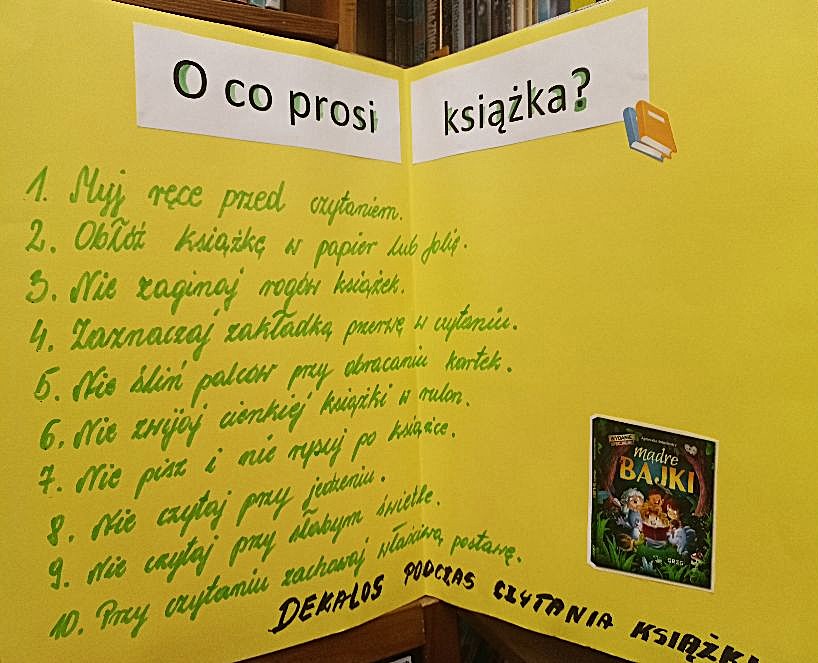 O co prosi książka?
1. Myj ręce przed czytaniem.
2. Obłóż książkę w papier lub folię.
3. Nie zaginaj rogów książek.
4. Zaznaczaj zakładką przerwę w czytaniu.
5. Nie śliń palców przy obracaniu kartek.
6. Nie zwijaj cienkiej książki w rulon.
7. Nie pisz i nie rysuj po książce.
8. Nie czytaj przy jedzeniu.
9. Nie czytaj przy słabym świetle.
10. Przy czytaniu zachowaj właściwą postawę.
mądre
BAJKI
GREG
DEKALOG PODCZAS CZYTANIA KSIĄŻKI